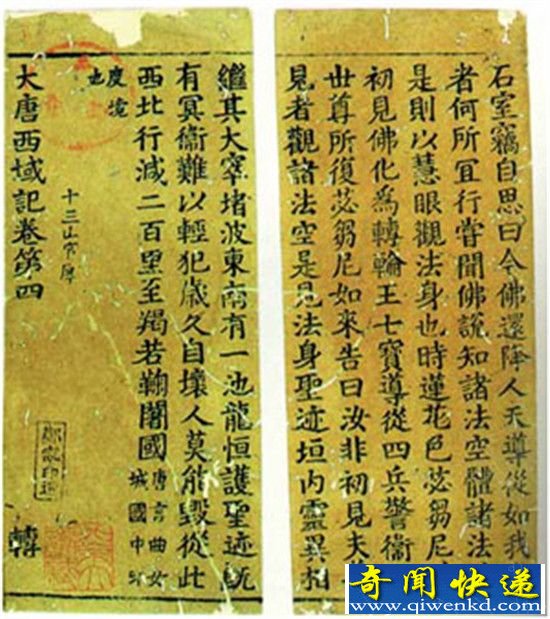 石室竊自思曰今佛還降人天導從如我
者何所冝行甞聞佛說知諸法空體諸法
是則以慧眼觀法身也時蓮花色苾芻尼
初見佛化爲轉輪王七寶導從四兵警衞
世尊所復苾芻尼如來告曰汝非初見夫
見者觀諸法空是見法身聖迹垣内靈異相
繼其大窣堵波東南有一池龍恒護聖迹旣
有冥衞難以輕犯歲久自壞人莫能毀從此
西北行減二百里至羯若鞠闍國
唐言曲女
城國中印
度境
也
十三
大唐西域記卷第四
轉
奇闻快递
www.qiwenkd.com